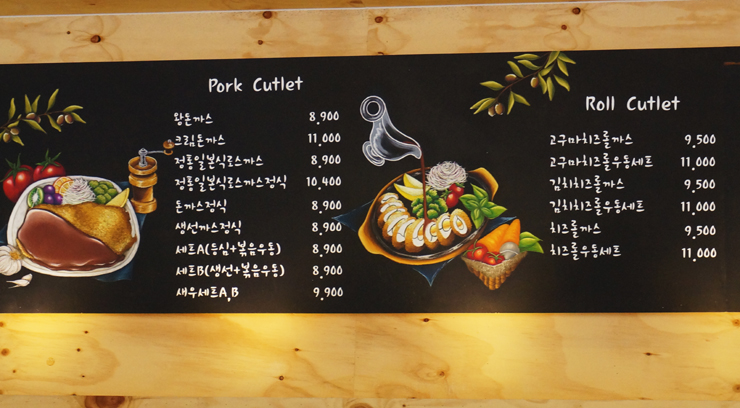 Pork Cutlet
왕돈까스 8,900
크림돈까스 11,000
정통일본식로스까스 8,900
정통일본식로스까스정식 10,400
돈까스정식 8,900
생선까스정식 8,900
세트A(등심+볶음우동) 8,900
세트B(생선+볶음우동) 8,900
새우세트A,B 9,900
Roll Cutlet
고구마치즈롤까스 9,500
고구마치즈롤우동세트 11,000
김치치즈롤까스 9,500
김치치즈롤우동세트 11,000
치즈롤까스 9,500
치즈롤우동세트 11,000